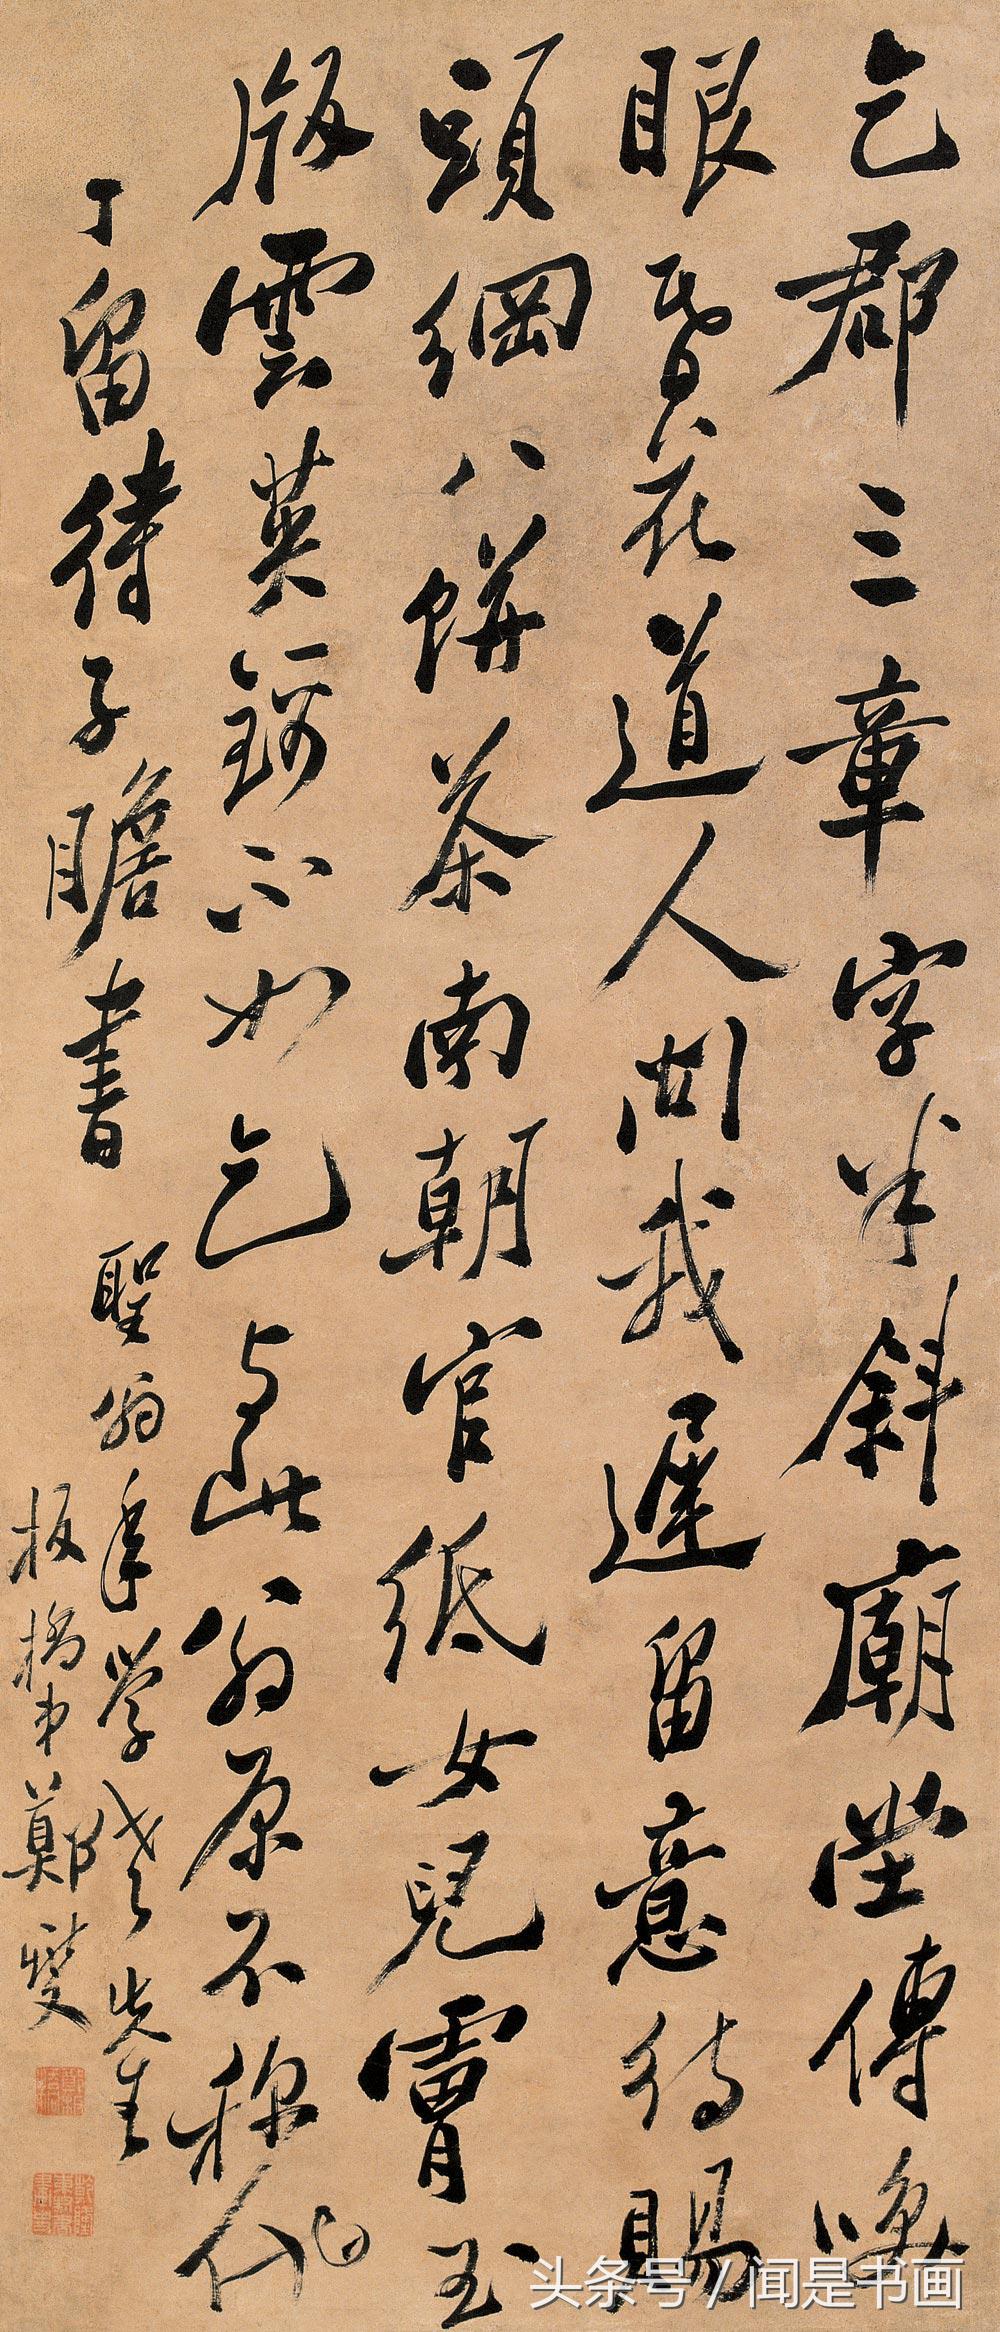 乞郡三章字半斜廟堂傳咲
眼昏花道人問我遲留意待賜
頭綱八餅茶南朝官紙女兒膚玉
版雲英不如乞与此翁原不称他
丁留待子瞻書 聖翁年學老先生
板橋弟鄭燮
头条号 / 闻是书画